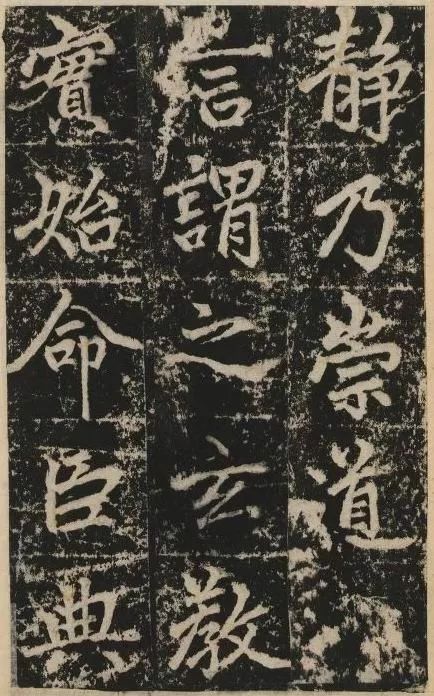 静乃崇道
言謂之玄教
實始命臣典